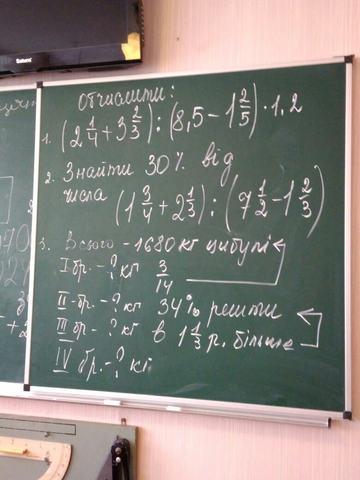 Samsung
Обчислити:
1. (2 1/4 + 3 2/3) : (8,5 − 1 2/5) · 1,2
2. Знайти 30% від
числа (1 3/4 + 2 1/3) : (7 1/2 − 1 2/3)
3. Всього - 1680 кг цибулі
I бр. - ? кг 3/14
II бр. - ? кг 34% решти
III бр. - ? кг в 1 1/3 р. більше
IV бр. - ? кг